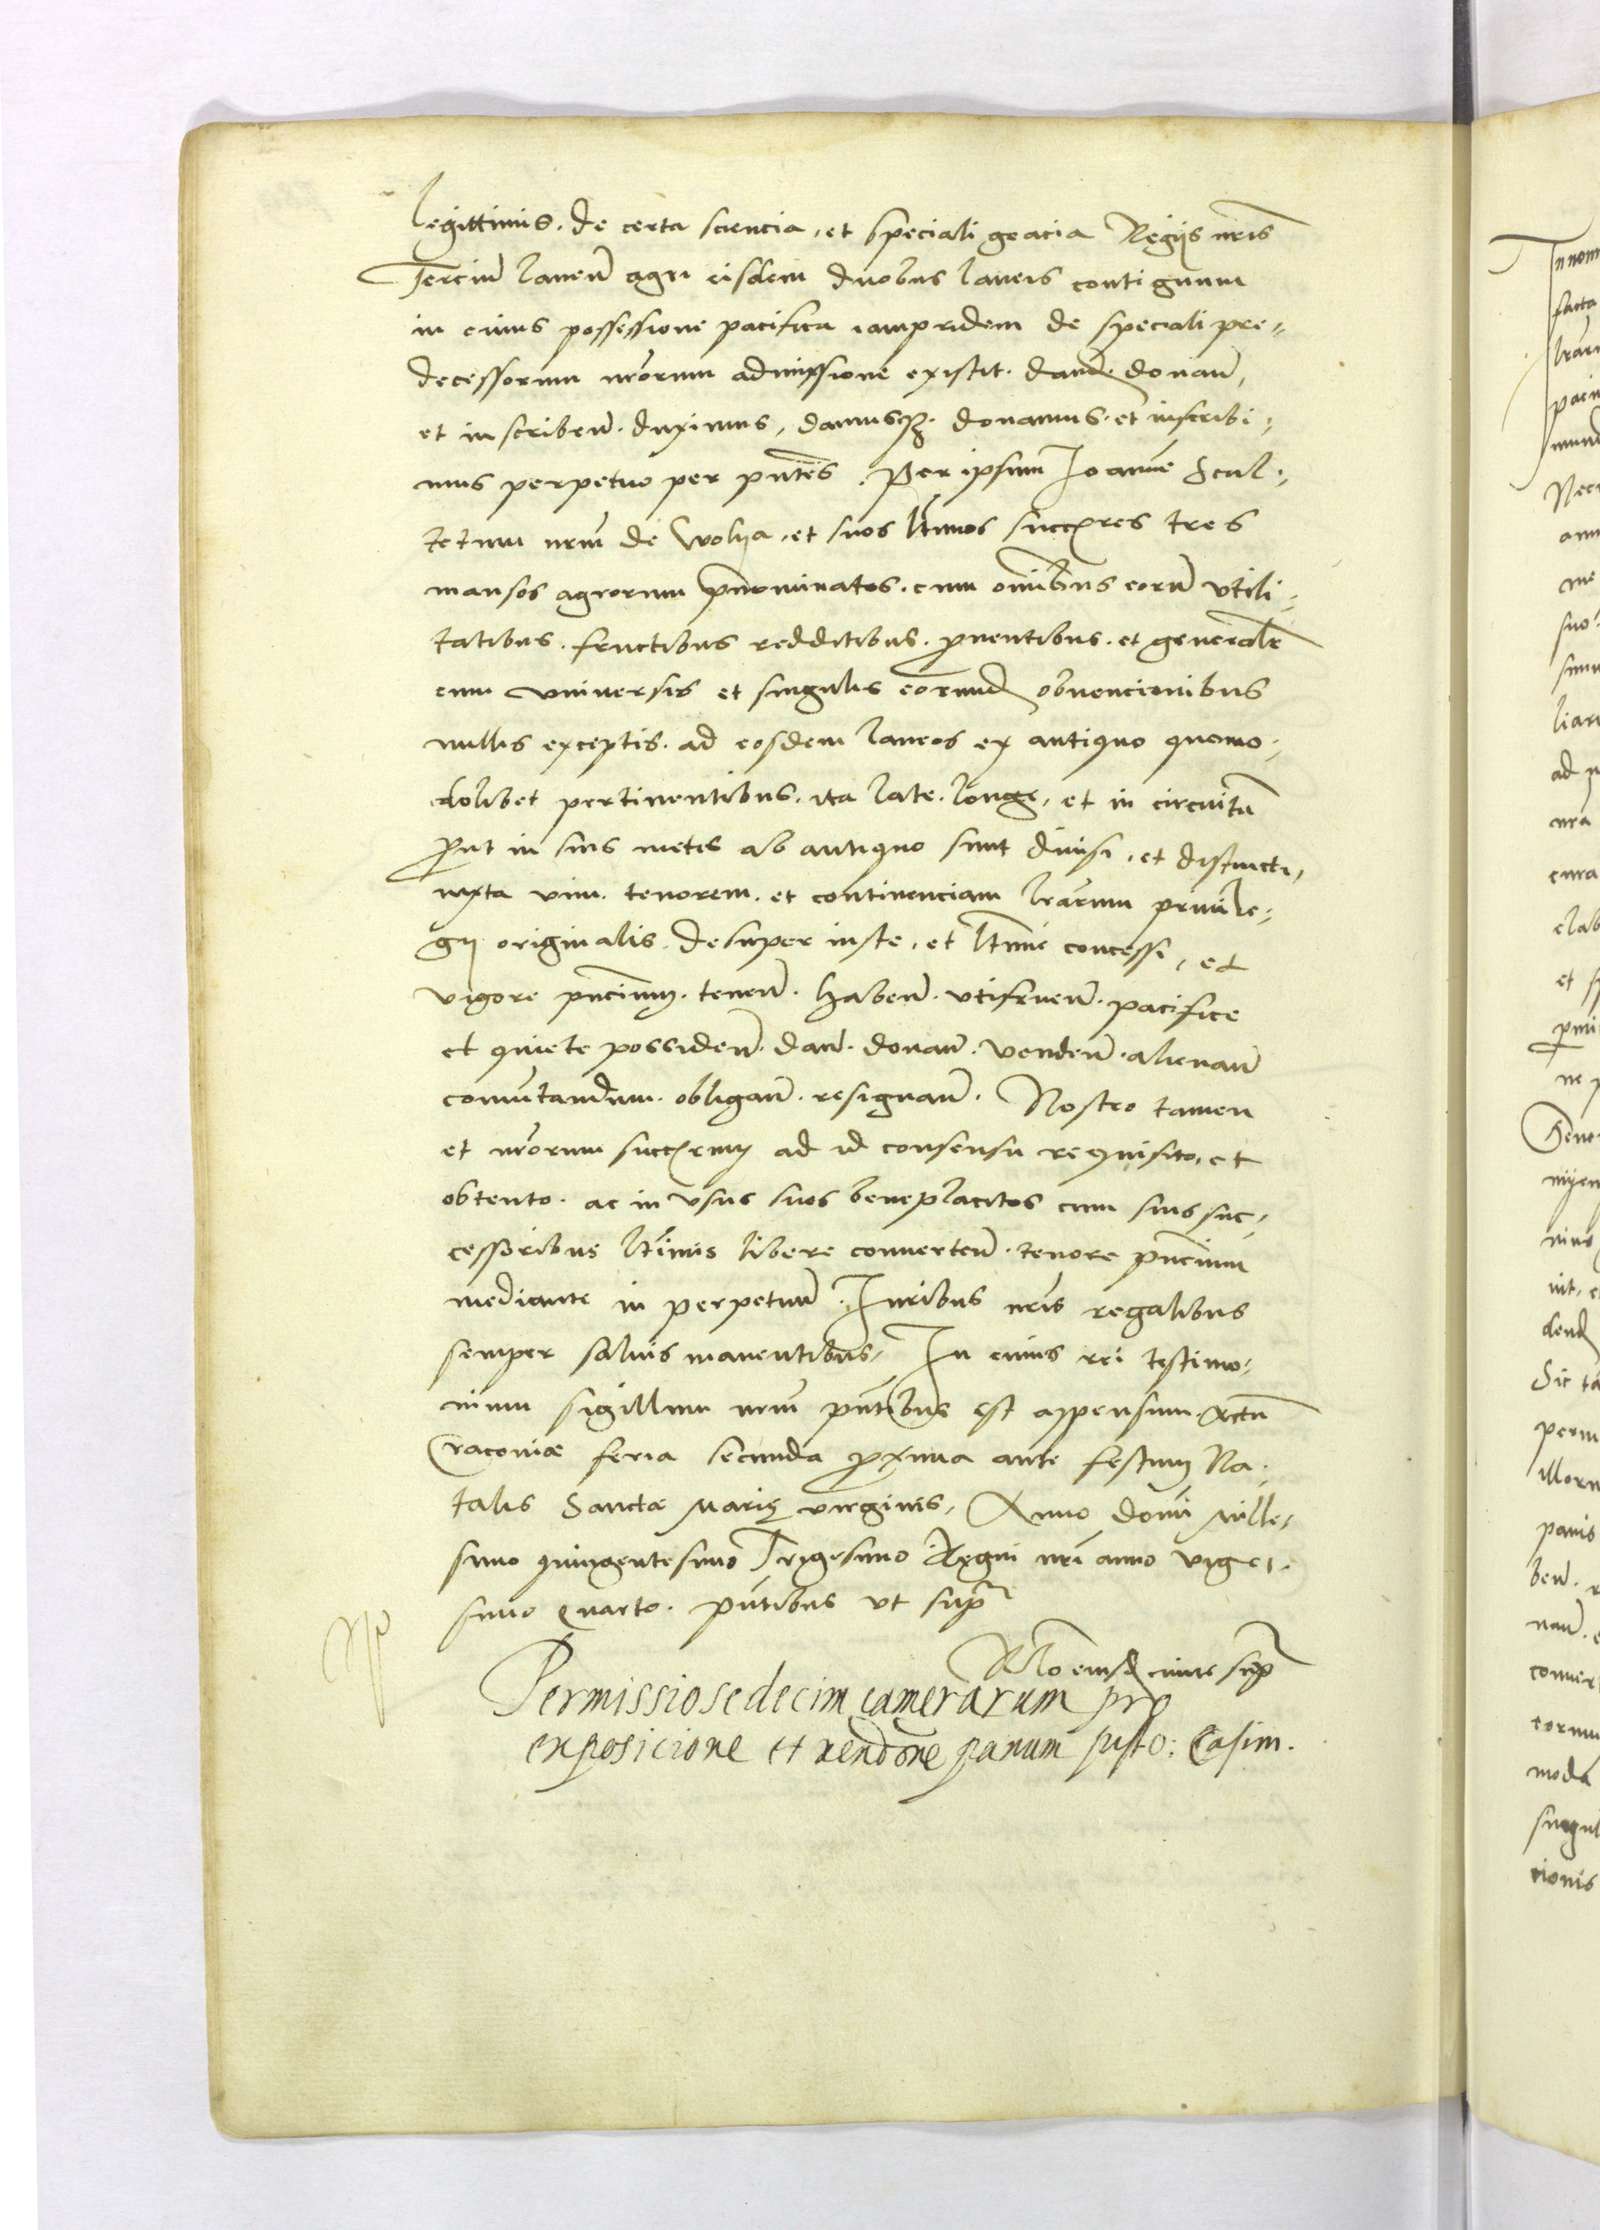 legittimis. de certa sciencia, et speciali gracia Regijs nris
Terciũ laneũ agri eisdem duobus laneis contiguum
in cuius possessione pacifica iampridem de speciali pre-
decessorum nrorum admissione existit. dand. donanđ,
et inscribenđ. duximus, damusqz. donamus. et inscribi-
mus perpetuo per pntes. Per ipsum Ioannẽ Scul-
tetum nrm de Wolya, et suos ltimos succores tres
mansos agrorum pnominatos. cum omnibus eorũ vtili-
tatibus. fructibus redditibus. prouentibus. et generalr
cum vniuersis et singulis eorund obuencionibus
nullis exceptis. ad eosdem laneos ex antiquo quomo-
dolibet pertinentibus. ita late. longe, et in circuitũ
prout in suis metis ab antiquo sunt diuisi, et distincti,
iuxta vim. tenorem. et continenciam lrarum priuile-
gij originalis desuper iuste, et ltime concessi, et
vigore pncium. tenenđ. habenđ. vtifruenđ. pacifice
et quiete possidenđ. danđ. donanđ. vendenđ. alienanđ
comutandum. obliganđ. resignanđ. Nostro tamen
et nrorum succorum ad id consensu requisito, et
obtento. ac in vsus suos beneplacitos cum suis suc-
cessoribus ltimis libere conuertenđ. tenore pncium
mediante in perpetuũ. Iuribus nris regalibus
semper saluis manentibus. In cuius rei testimo-
nium sigillum nrm pntibus est appensum. Actũ
Cracouiæ feria secunda proxima ante festum Na-
talis Sanctæ Marię virginis, Anno domi Mille-
simo quingentesimo Trigesimo Regni nri anno viget-
simo Quarto. pntibus vt supra
Rlo eiusd cuius supra
Permissio sedecim camerarum pro
exposicione et vendone panum pisto: Casim.